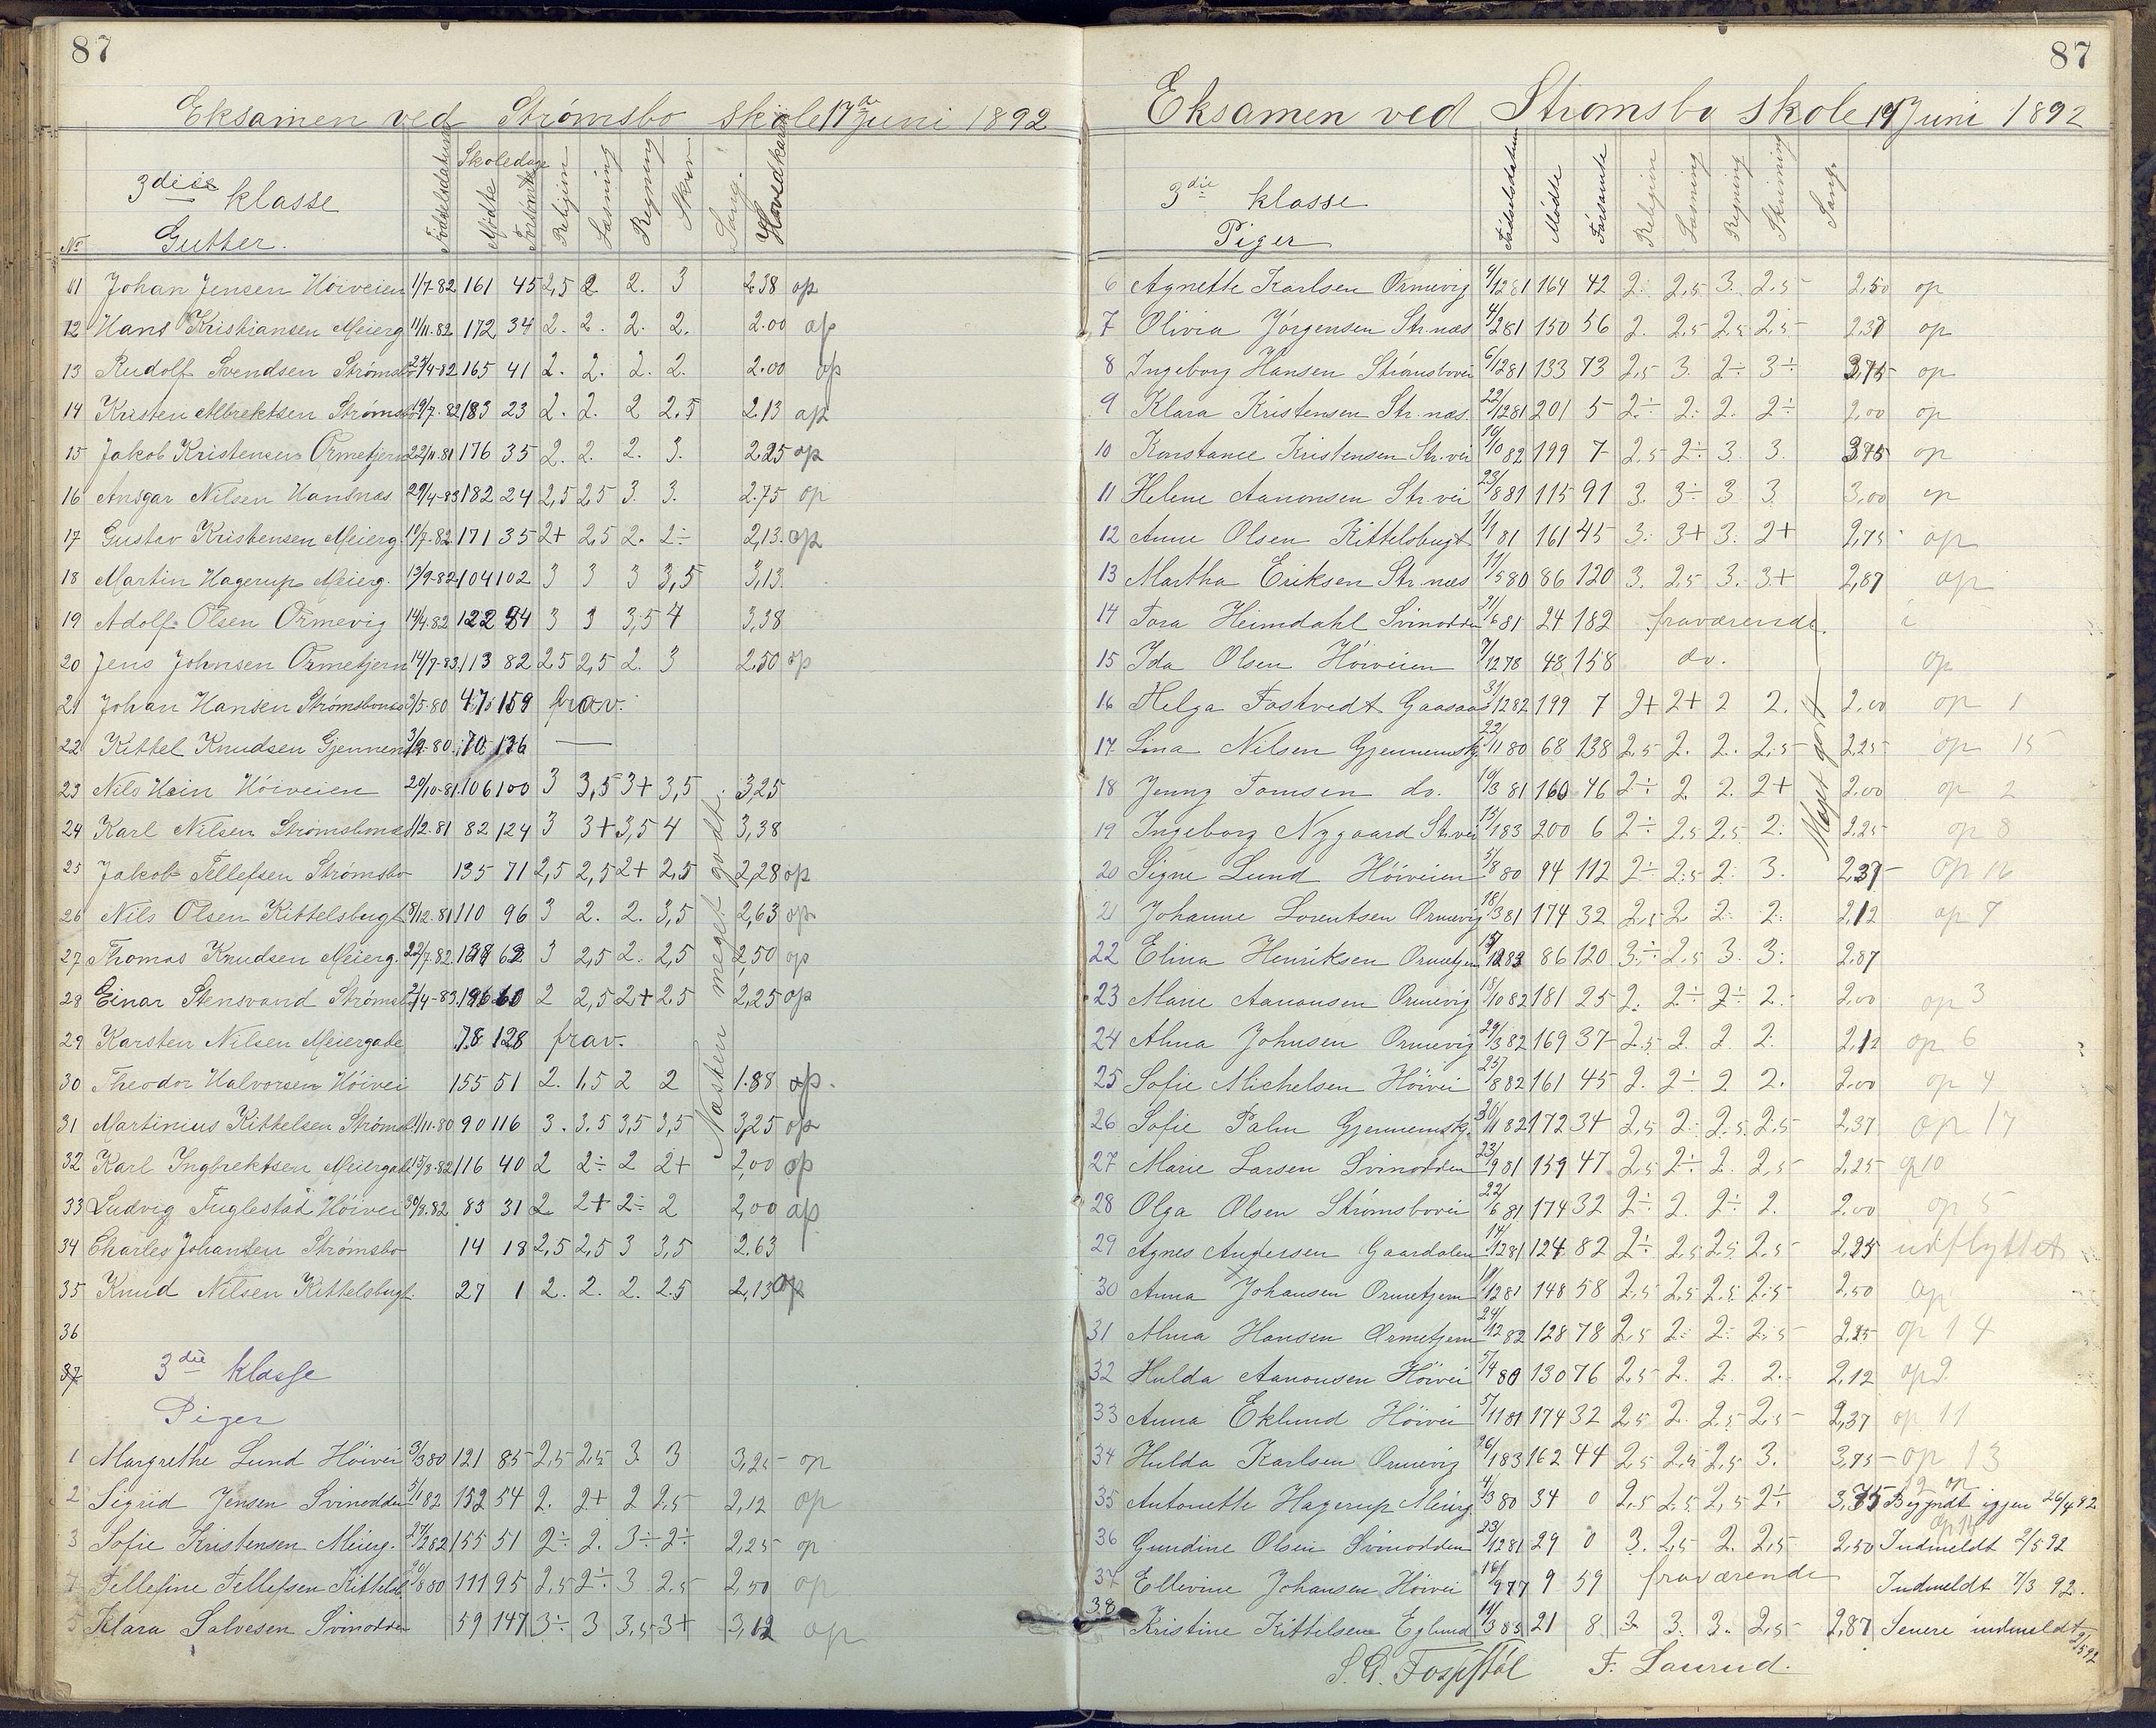 87
Eksamen ved Strømsbo skole 17de Juni 1892
3die klasse
Gutter.
No Fødselsdatum Skoledage Mødte Forsømte Religion Læsning Regning Skrivn Sang. Hovedkarakter
11 Johan Jensen Höiveien 1/7-82 161 45 2,5 2 2. 3 2.38 op
12 Hans Kristiansen Meierg 11/11.82 172 34 2. 2. 2. 2. 2.00 op
13 Rudolf Svendsen Strømsbo 23/4-82 165 41 2. 2. 2. 2. 2.00 op
14 Kristen Albrektsen Strømsbo 19/7-82 183 23 2. 2. 2 2.5 2.13 op
15 Jakob Kristensen Ormetjern 22/11.81 176 35 2. 2. 2. 3. 2.25 op
16 Ansgar Nilsen Hansnæs 29/4-83 182 24 2,5 2,5 3. 3. 2.75 op
17 Gustav Kristensen Meierg. 19/7-82 171 35 2+ 2,5 2. 2÷ 2,13. op
18 Martin Hagerup Meierg. 13/9-82 104 102 3 3 3 3,5 3,13.
19 Adolf Olsen Ormevig 14/4.82 122 84 3 3 3,5 4 3,38
20 Jens Johnsen Ormetjern 14/7-83 113 82 2,5 2,5 2. 3 2.50 op
21 Johan Hansen Strømsbonæs 3/5-80 47 159 frav.
22 Kittel Knudsen Gjennemsk 3/9-80 70 136 —
23 Nils Hein Höiveien 29/10-81 106 100 3 3,5 3+ 3,5 3,25
24 Karl Nilsen Strømsbonæs 1/2-81 82 124 3 3+ 3,5 4 3,38
25 Jakob Tellefsen Strømsbo 135 71 2,5 2,5 2+ 2,5 2,28 op
26 Nils Olsen Kittelsbugt 8/12.81 110 96 3 2. 2. 3,5 2,63 op
27 Thomas Knudsen Meierg. 22/7-82 62 3 2,5 2. 2,5 2,50 op
28 Einar Stensvand Strømsbo 2/4-83 2 2,5 2+ 2,5 2,25 op
29 Karsten Nilsen Meiergade 78 128 frav.
30 Theodor Halvorsen Höivei 155 51 2. 1,5 2 2 1.88 op.
31 Martinius Kittelsen Strømsb 1/11-80 90 116 3. 3.5 3,5 3,5 3,25 op
32 Karl Ingbrektsen Meiergade 15/8-82 116 40 2 2÷ 2 2+ 2,00 op
33 Ludvig Fuglestad Höivei 30/8.82 83 31 2 2+ 2÷ 2 2,00 op
34 Charles Johansen Strømsbo 14 18 2,5 2,5 3 3,5 2.63
35 Knud Nilsen Kittelsbugt. 27 1 2. 2. 2. 2.5 2,13 op
Næsten meget godt.
36
37 3die klasse
Piger
1 Margrethe Lund Höivei 3/3 80 121 85 2,5 2,5 3. 3 3,25 op
2 Sigrid Jensen Svinodden 5/11 82 152 54 2. 2+ 2 2,5 2,12 op
3 Sofie Kristensen Meierg. 27/2 82 155 51 2÷ 2. 3÷ 2÷ 2,25 op
4 Tellefine Tellefsen Kittelsb 20/8 80 111 95 2,5 2÷ 3 2,5 2,50 op
5 Klara Salvesen Svinodden 59 147 3÷ 3 3,5 3+ 3,12 op
87
Eksamen ved Strømsbo skole 17 Juni 1892
3die klasse
Piger
Fødselsdatum Mødte Forsømte Religion Læsning Regning Skrivning Sang
6 Agnette Karlsen Ormevig 9/12 81 164 42 2. 2,5 3. 2,5 2,50 op
7 Olivia Jörgensen Str.næs 4/2 81 150 56 2. 2,5 2,5 2,5 2,37 op
8 Ingeborg Hansen Strömsbovei 6/12 81 133 73 2,5 3. 2÷ 3÷ 2,75 op
9 Klara Kristensen Str.næs. 22/12 81 201 5 2÷ 2. 2. 2÷ 2,00 op
10 Konstance Kristensen Str.vei 16/10 82 199 7 2,5 2÷ 3. 3. op
11 Helene Aanonsen Str.vei 23/8 81 115 91 3. 3÷ 3 3. 3,00 op
12 Anne Olsen Kittelsbugt 1/1 81 161 45 3. 3+ 3. 2+ 2,75 op
13 Martha Eriksen Str.næs 11/5 80 86 120 3. 2,5 3. 3+ 2,87 op
14 Tora Heimdahl Svinodden 21/6 81 24 182 fraværende.
15 Ida Olsen Höiveien 7/12 78 48 158 do. op
16 Helga Fostvedt Gaasaas 31/12 82 199 7 2+ 2+ 2 2. 2,00 op 1
17 Lina Nilsen Gjennemskj. 22/11 80 68 138 2,5 2. 2. 2,5 2,25 op 15
18 Jenny Tomsen do. 19/3 81 160 46 2÷ 2. 2. 2+ 2,00 op 2
19 Ingeborg Nygaard Str.vei 13/1 83 200 6 2÷ 2,5 2,5 2. 2,25 op 8
20 Signe Lund Höiveien 5/8 80 94 112 2÷ 2,5 2. 3. 2,37 op 16
21 Johanne Lorentsen Ormevig 18/3 81 174 32 2,5 2 2. 2. 2,12 op 7
22 Elina Henriksen Ormetjern 86 120 3÷ 2,5 3. 3. 2,87
23 Marie Aanonsen Ormevig 18/10 82 181 25 2. 2÷ 2÷ 2. 2,00 op 3
24 Alma Johnsen Ormevig 29/3 82 169 37 2,5 2. 2 2. 2,12 op 6
25 Sofie Michelsen Höivei 25/8 82 161 45 2. 2÷ 2. 2. 2,00 op 4
26 Sofie Palm Gjennemskj. 30/11 82 172 34 2,5 2. 2,5 2,5 2,37 op 17
27 Marie Larsen Svinodden 23/9 81 159 47 2,5 2÷ 2. 2,5 2,25 op 10
28 Olga Olsen Strømsbovei 22/6 81 174 32 2÷ 2. 2÷ 2. 2,00 op 5
29 Agnes Andersen Gaardalen 14/12 81 124 82 2÷ 2,5 2,5 2,5 2,25 udflyttet
30 Anna Johansen Ormetjern 19/12 81 148 58 2,5 2,5 2,5 2,5 2,50 op
31 Alma Hansen Ormetjern 24/12 82 128 78 2,5 2. 2. 2,5 2,25 op 14
32 Hulda Aanonsen Höivei 5/4 80 130 76 2,5 2. 2. 2. 2,12 op 9
33 Anna Eklund Höivei 5/11 81 174 32 2,5 2. 2,5 2,5 2,37 op 11
34 Hulda Karlsen Ormevig 26/1 83 162 44 2,5 2,5 2,5 3. op 13
35 Antonette Hagerup Meierg 4/3 80 34 0 2,5 2,5 2,5 2÷ 12 op Begyndt igjen 26/4 92
36 Gundine Olsen Svinodden 23/12 81 29 0 3. 2,5 2. 2,5 2,50 Indmeldt 2/5 92
37 Ellevine Johansen Höivei 16/9 77 9 59 fraværende Indmeldt 7/3 92.
38 Kristine Kittelsen Eglund 11/3 83 21 8 3. 3. 3. 2,5 2,87 Senere indmeldt 9/5 92
Meget godt
F. Laurud.